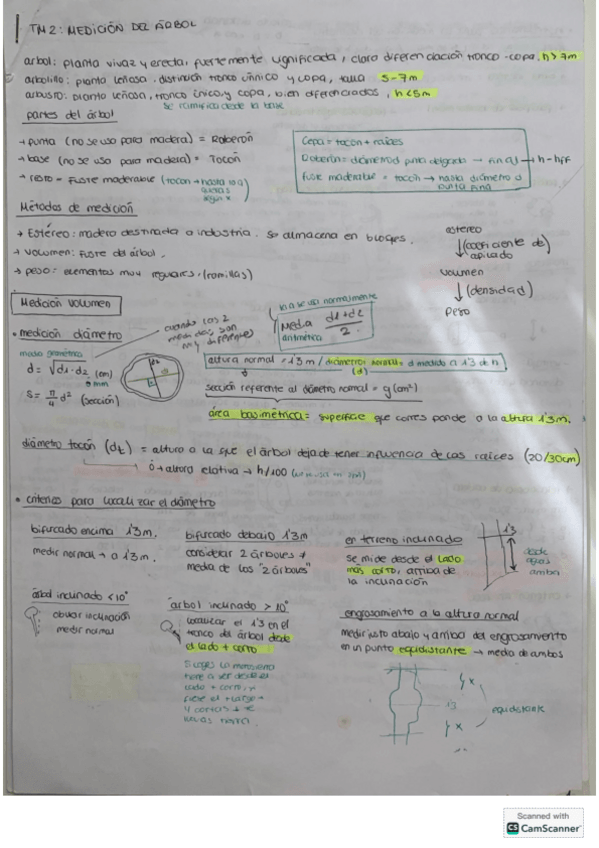 TM2: MEDICIÓN DEL ÁRBOL
árbol: planta vivaz y erecta, fuertemente lignificada, clara diferenciación tronco-copa. h>7m
arbolillo: planta leñosa, distinción tronco único y copa, talla 5-7m
arbusto: planta leñosa, tronco único y copa, bien diferenciados, h<5m
se ramifica desde la base
partes del árbol
→ punta (no se usa para madera) = Raberón
→ base (no se usa para madera) = Tocón
→ resto = Fuste maderable (tocón → hasta
según x
Cepa = tocón + raíces
Raberón = diámetro d punta delgada → final → h - hff
fuste maderable = tocón → hasta diámetro d punta fina
Métodos de medición
→ Estéreo: madera destinada a industria. se almacena en bloques.
→ volumen: fuste del árbol.
→ peso: elementos muy regulares. (ramillas)
estéreo
(coeficiente de apilado)
volumen
(densidad)
peso
Medición volumen
• medición diámetro
cuando los 2 medidas son muy diferentes
la se usa normalmente
Media aritmética
d1+d2
2
media geométrica
d = √d1·d2 (cm)
mm
S = π/4 d² (sección)
altura normal = 1'3 m / diámetro normal = d medido a 1'3 de h
(d)
sección referente al diámetro normal = g (cm²)
área basimétrica = superficie que corresponde a la altura 1'3m.
diámetro tocón (dt) = altura a la que el árbol deja de tener influencia de las raíces (20/30cm)
ó altura relativa → h/100
• criterios para localizar el diámetro
bifurcado encima 1'3m.
medir normal → a 1'3m.
bifurcado debajo 1'3m
considerar 2 árboles +
media de los "2 árboles"
en terreno inclinado
se mide desde el lado
más corto, arriba de
la inclinación
1'3
desde
arriba
árbol inclinado <10°
obviar inclinación
medir normal
árbol inclinado >10°
localizar el 1'3 en el
tronco del árbol desde
el lado + corto
lado + corto,
engrosamiento a la altura normal
medir justo abajo y arriba del engrosamiento
en un punto equidistante → media de ambos
x
1'3
equidistante
x
Scanned with
CS CamScanner